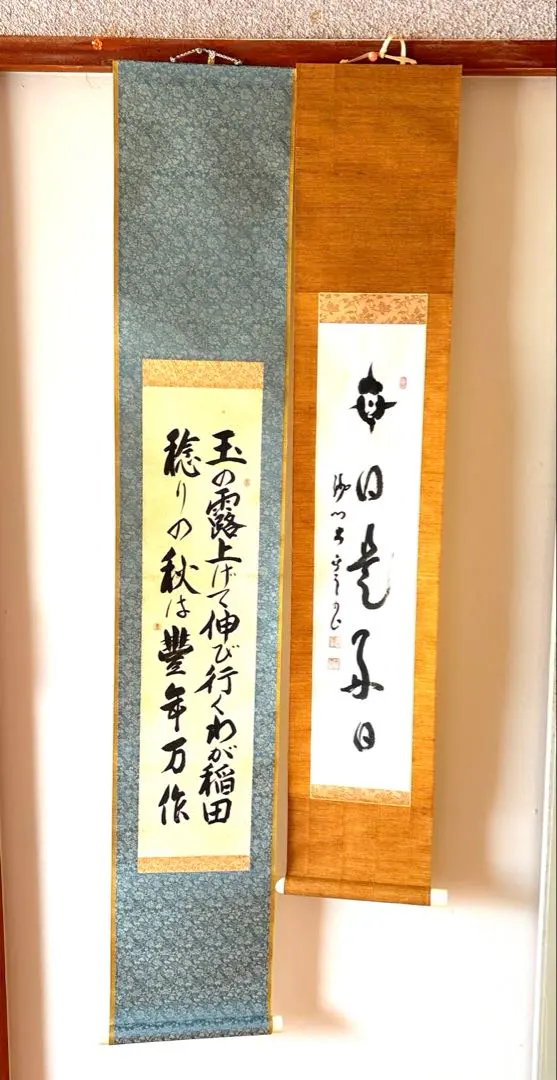 毎日是好日
玉の露上げて伸び行くわが稲田
稔りの秋は豐年万作